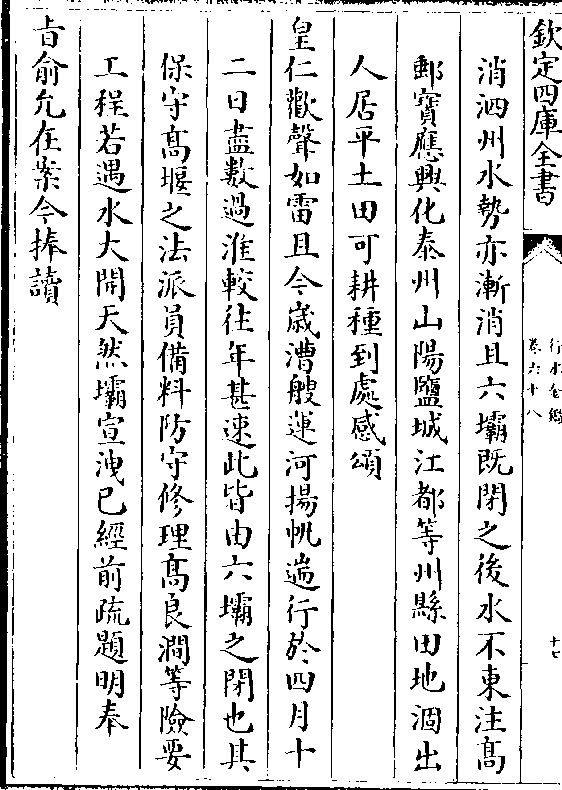 欽定四庫全書
行水金鑑
卷六十八
十七
消泗州水勢亦漸消且六壩既閉之後水不東注髙
郵寳應興化泰州山陽鹽城江都等州縣田地涸出
人居平土田可耕種到處感頌
皇仁歡聲如雷且今歲漕艘運河揚帆遄行於四月十
二日盡數過淮較往年甚速此皆由六壩之閉也其
保守髙堰之法派員備料防守修理髙良澗等險要
工程若遇水大開天然壩宣洩已經前疏題明奉
㫖俞允在案今捧讀